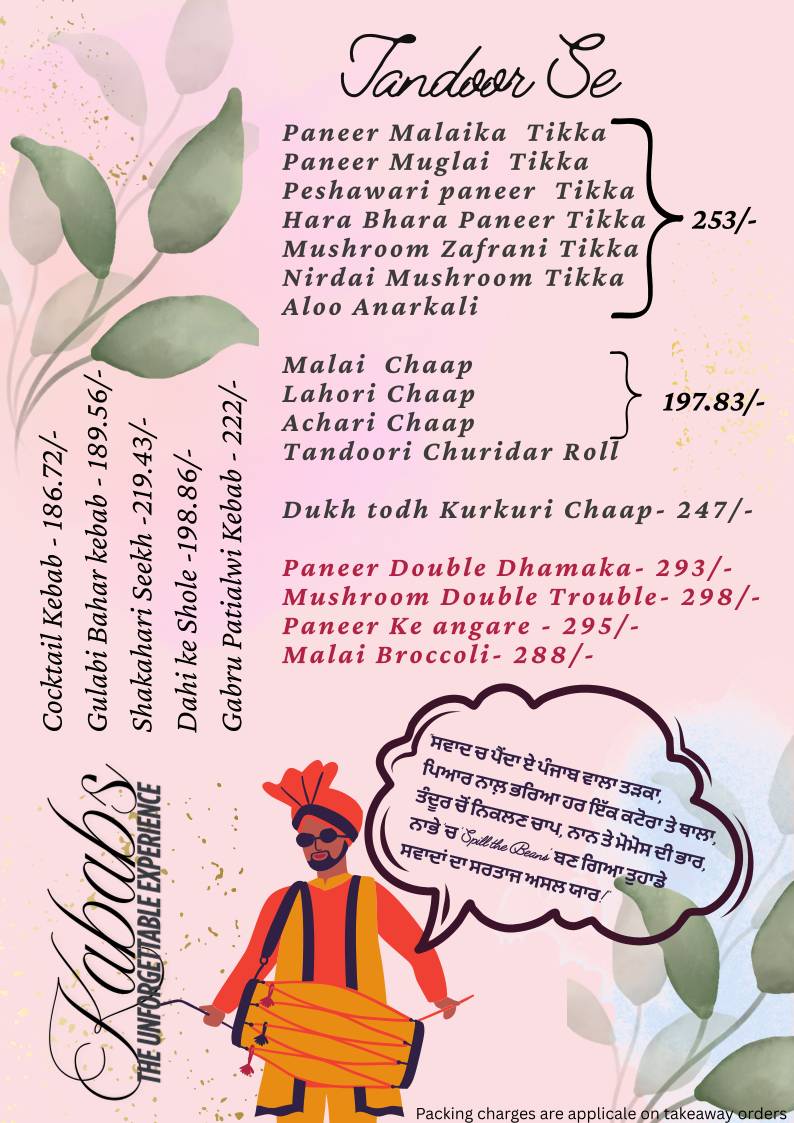 Tandoor Se
Paneer Malaika Tikka
Paneer Muglai Tikka
Peshawari paneer Tikka
Hara Bhara Paneer Tikka
253/-
Mushroom Zafrani Tikka
Nirdai Mushroom Tikka
Aloo Anarkali
Malai Chaap
Lahori Chaap
197.83/-
Achari Chaap
Tandoori Churidar Roll
Dukh todh Kurkuri Chaap- 247/-
Paneer Double Dhamaka- 293/-
Mushroom Double Trouble- 298/-
Paneer Ke angare - 295/-
Malai Broccoli- 288/-
Cocktail Kebab - 186.72/-
Gulabi Bahar kebab - 189.56/-
Shakahari Seekh -219.43/-
Dahi ke Shole -198.86/-
Gabru Patialwi Kebab - 222/-
Kababs
THE UNFORGETTABLE EXPERIENCE
ਸਵਾਦ ਚ ਪੈਂਦਾ ਏ ਪੰਜਾਬ ਵਾਲਾ ਤੜਕਾ,
ਪਿਆਰ ਨਾਲ਼ ਭਰਿਆ ਹਰ ਇੱਕ ਕਟੋਰਾ ਤੇ ਥਾਲਾ,
ਤੰਦੂਰ ਚੋਂ ਨਿਕਲਣ ਚਾਪ, ਨਾਨ ਤੇ ਮੋਮੋਸ ਦੀ ਭਾਰ,
ਨਾਭੇ 'ਚ 'Spill the Beans' ਬਣ ਗਿਆ ਤੁਹਾਡੇ
ਸਵਾਦਾਂ ਦਾ ਸਰਤਾਜ ਅਸਲ ਯਾਰ!"
Packing charges are applicale on takeaway orders